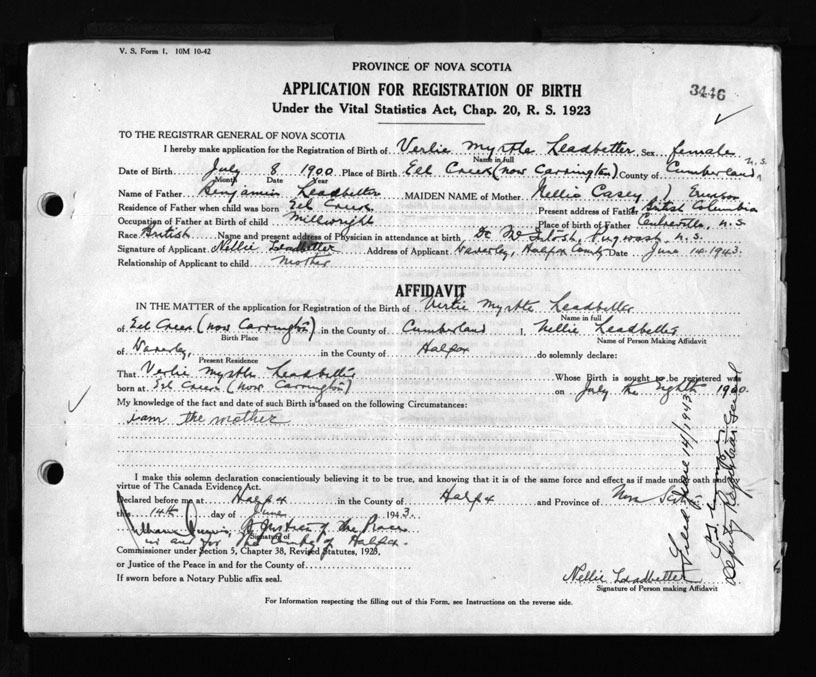 V. S. Form 1. 10M 10-42
PROVINCE OF NOVA SCOTIA
APPLICATION FOR REGISTRATION OF BIRTH
3446
Under the Vital Statistics Act, Chap. 20, R. S. 1923
TO THE REGISTRAR GENERAL OF NOVA SCOTIA
I hereby make application for the Registration of Birth of Verlie Myrtle Leadbetter Sex female
Name in full
Date of Birth July 8 1900 Place of Birth Eel Creek (now Carrington) County of Cumberland N.S.
Month Date Year
Name of Father Benjamin Leadbetter MAIDEN NAME of Mother Nellie Casey
Residence of Father when child was born Eel Creek Present address of Father British Columbia
Occupation of Father at Birth of child Millwright Place of birth of Father Centreville, N.S
Race British Name and present address of Physician in attendance at birth Dr McIntosh, Pugwash, N.S.
Signature of Applicant Nellie Leadbetter Address of Applicant Waverley, Halifax County Date June 14-1943.
Relationship of Applicant to child Mother
AFFIDAVIT
IN THE MATTER of the application for Registration of the Birth of Verlie Myrtle Leadbetter
Name in full
of Eel Creek (now Carrington) in the County of Cumberland I, Nellie Leadbetter
Birth Place Name of Person Making Affidavit
of Waverley, in the County of Halifax do solemnly declare:
Present Residence
That Verlie Myrtle Leadbetter Whose Birth is sought to be registered was
born at Eel Creek (now Carrington) on July the eighth 1900.
My knowledge of the fact and date of such Birth is based on the following Circumstances:
I am the mother
I make this solemn declaration conscientiously believing it to be true, and knowing that it is of the same force and effect as if made under oath and
virtue of The Canada Evidence Act.
Declared before me at Halifax in the County of Halifax and Province of Nova Scotia
this 14th day of June 1943.
A Justice of the Peace
Signature of
in and for the County of Halifax.
Commissioner under Section 5, Chapter 38, Revised Statutes, 1923,
or Justice of the Peace in and for the County of
If sworn before a Notary Public affix seal.
Nellie Leadbetter
Signature of Person making Affidavit
For Information respecting the filling out of this Form, see Instructions on the reverse side.
Filed June 14/1943
Deputy Registrar General